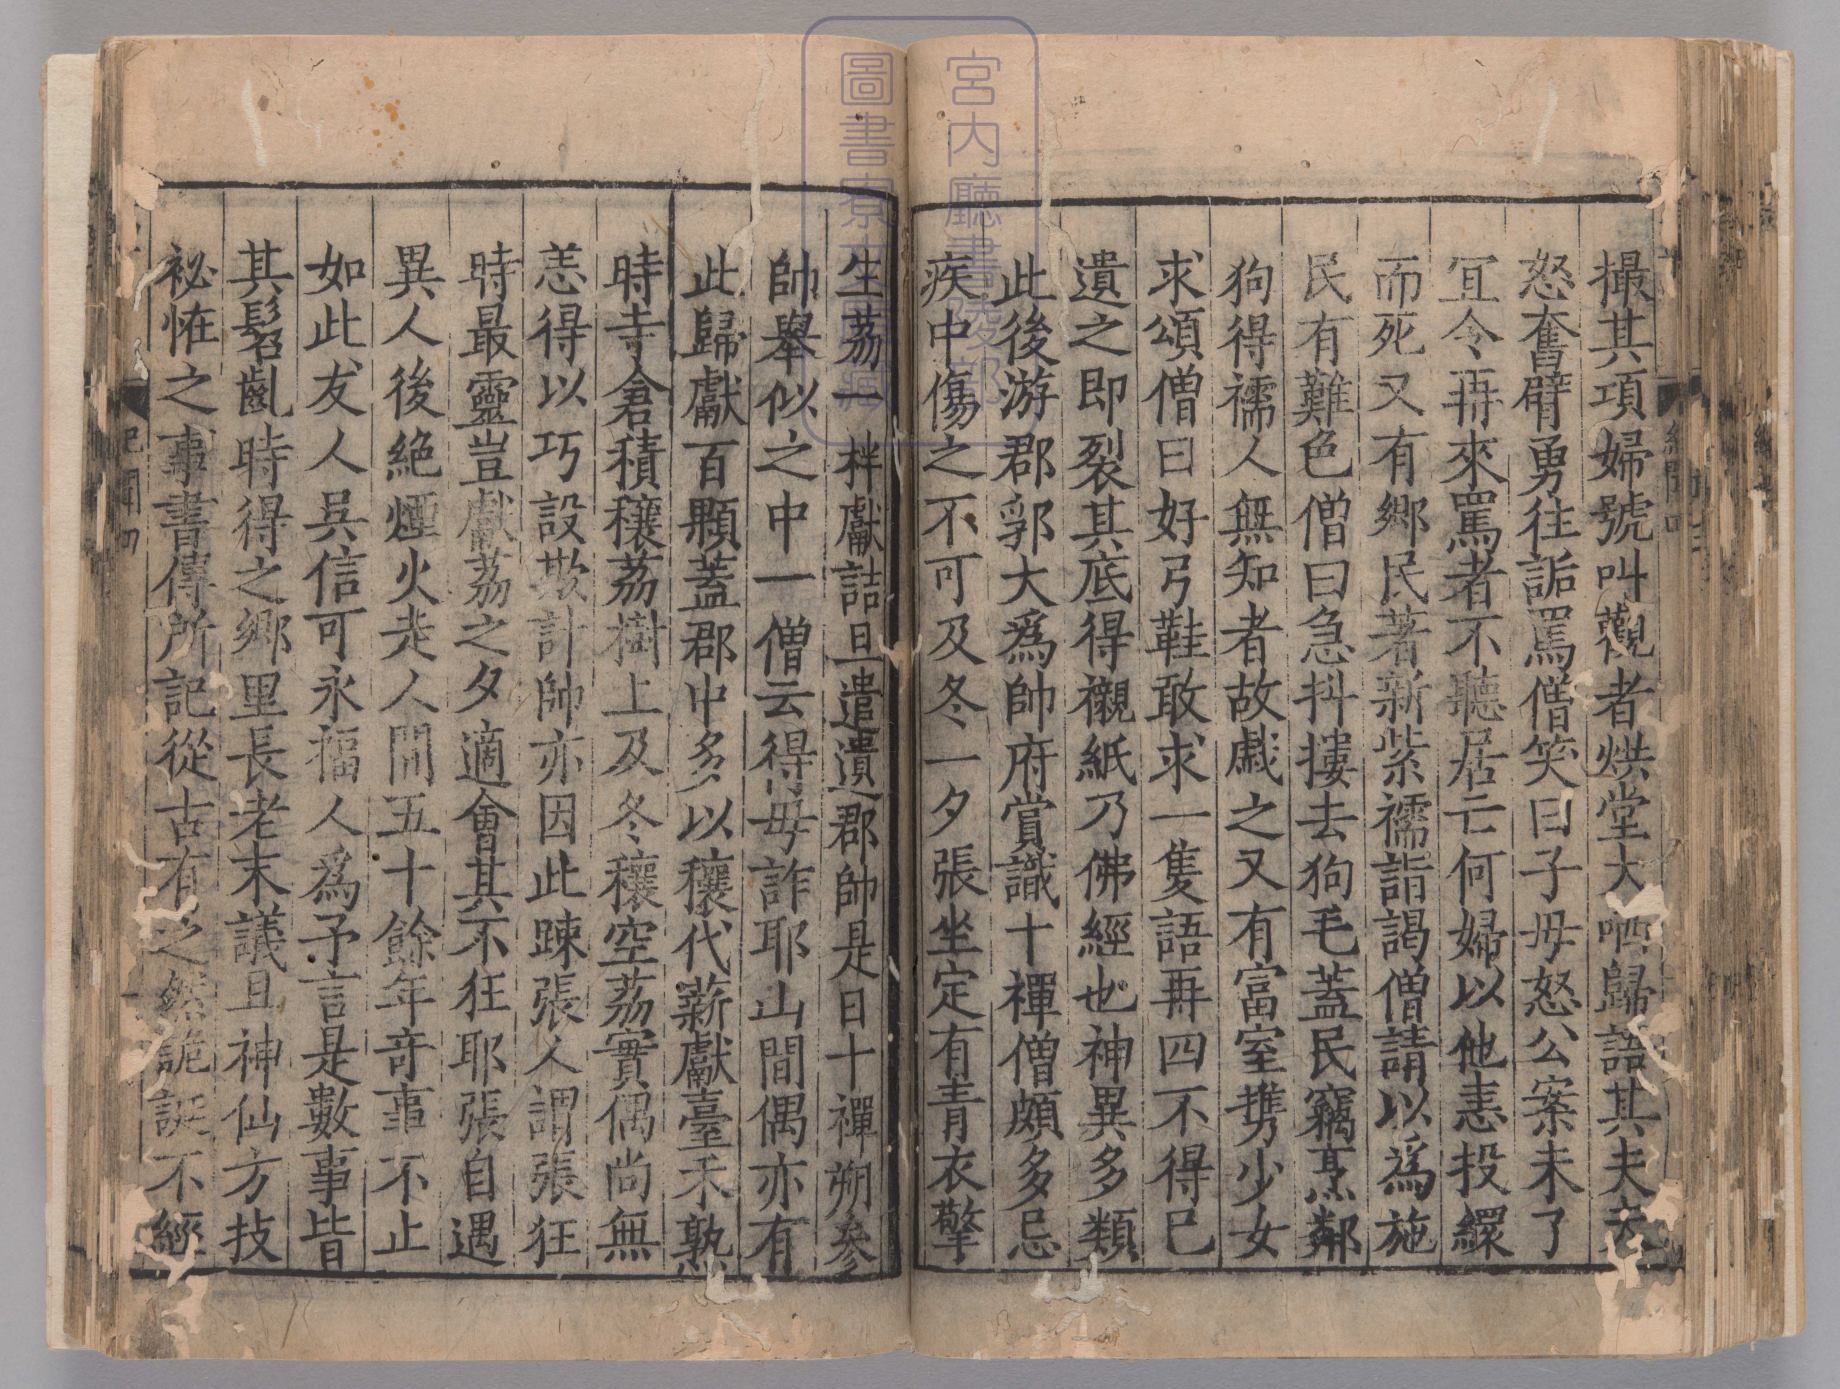 撮其項婦號叫觀者烘堂大哂歸語其夫夫
怒奮臂勇往詬罵僧笑曰子毋怒公案未了
冝令再來罵者不聽居亡何婦以他恚投繯
而死又有鄉民著新紫襦詣謁僧請以為施
民有難色僧曰急抖摟去狗毛蓋民竊烹鄰
狗得襦人無知者故戯之又有富室携少女
求頌僧曰好弓鞋敢求一隻語再四不得已
遺之即裂其底得襯紙乃佛經也神異多類
此後游郡郭大為帥府賞識十禪僧頗多忌
疾中傷之不可及冬一夕張坐定有青衣擎
生荔一柈獻詰旦遣遺郡帥是日十禪朔參
帥舉似之中一僧云得毋詐耶山間偶亦有
此歸獻百顆蓋郡中多以穰代薪獻臺禾熟
時寺倉積穰荔樹上及冬穰空荔實偶尚無
恙得以巧設欺計帥亦因此踈張人謂張狂
時最靈豈獻荔之夕適會其不狂耶張自遇
異人後絶煙火走人間五十餘年竒事不止
如此友人吳信可永福人為予言是數事皆
其髫齓時得之鄉里長老末議且神仙方技
祕恠之事書傳所記從古有之然詭誕不經
紀聞四
宮内廳書陵部
圖書寮文庫